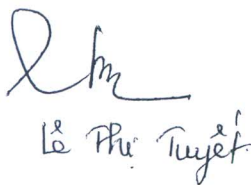 Lê Thị Tuyết